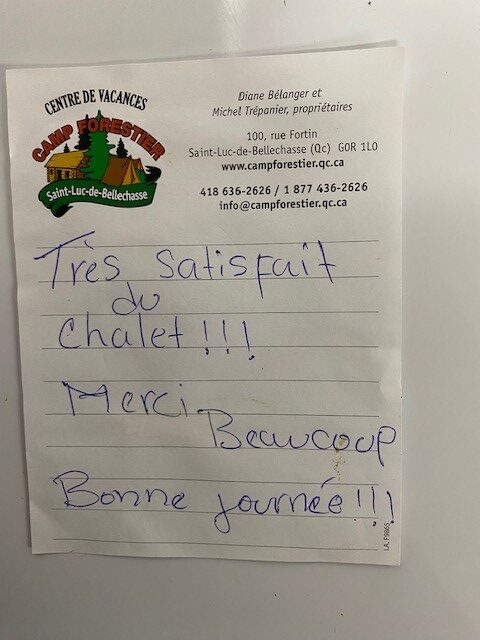 CENTRE DE VACANCES
CAMP FORESTIER
Saint-Luc-de-Bellechasse
Diane Bélanger et
Michel Trépanier, propriétaires
100, rue Fortin
Saint-Luc-de-Bellechasse (Qc) G0R 1L0
www.campforestier.qc.ca
418 636-2626 / 1 877 436-2626
info@campforestier.qc.ca
Très satisfait
du
chalet!!!
Merci
Beaucoup
Bonne journée!!!
I.A. F9865